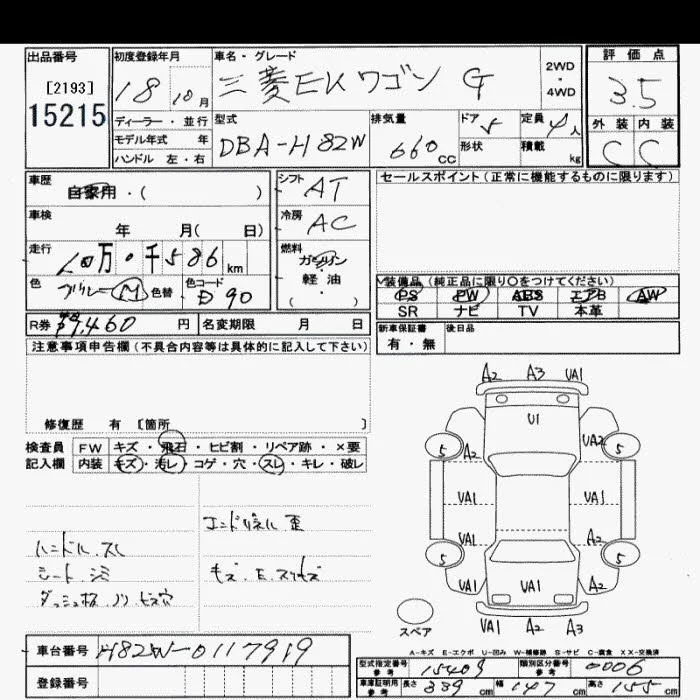 出品番号
[2193]
15215
初度登録年月
18 10月
車名・グレード
三菱EKワゴン G
2WD
・
4WD
評価点
3.5
ディーラー・並行
モデル年式 年
ハンドル 左・右
型式
DBA-H82W
排気量
660cc
ドア 5
形状
定員 4人
積載 kg
外装 内装
C C
車歴
自家用・( )
シフト AT
セールスポイント(正常に機能するものに限ります)
車検
年 月( 日)
冷房 AC
走行
10万0千586km
燃料
ガソリン
軽・油
( )
色
ブルーM 色替
色コード
D90
装備品(純正品に限り○をつけてください)
PS PW ABS エアB AW
SR ナビ TV 本革
R券 ¥9,460円
名変期限 月 日
新車保証書
有・無
後日品
注意事項申告欄(不具合内容等は具体的に記入して下さい)
修復歴 有 [箇所 ]
検査員
記入欄
FW キズ・飛石・ヒビ割・リペア跡・×要
内装 キズ・汚レ・コゲ・穴・スレ・キレ・破レ
エンドパネル歪
ハンドル.スレ
シート.シミ
キズ.E.スリキズ
ダッシュ板ノリ.ビス穴
A2 A3 UA1
U1
5 A2 UA2 5
UA1 UA1 UA1
UA1 A2
5 5
UA1 UA1 A2
UA1 A2 A3
スペア
A-キズ E-エクボ U-凹み W-補修跡 S-サビ C-腐食 XX-交換済
車台番号 H82W-0117919
登録番号
型式指定番号
参考
15409
類別区分番号
参考
0006
車庫証明用
参考
長さ 339cm 幅 147cm 高さ 155cm